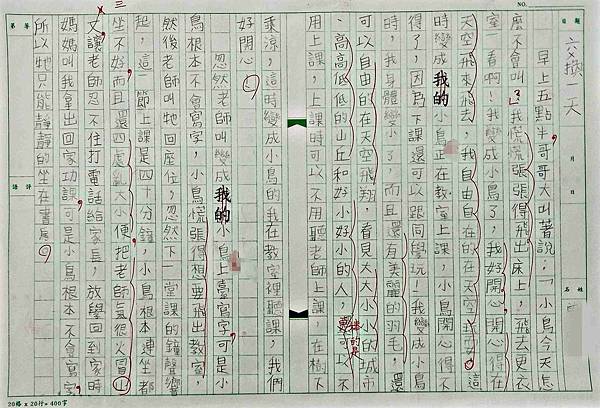 NO.
題目
交換一天
月
日
姓名
早上五點半,哥哥大叫著說:「小鳥今天怎
麼不會叫?」我慌慌張張得飛出床上,飛去更衣
室一看啊!我變成小鳥了,我好開心,開心得在
天空飛來飛去,我自由自在的在天空飛,這
時變成我的小鳥正在教室上課,小鳥開心得不
得了,因為下課還可以跟同學玩!我變成小鳥
時,我身體變小了,而且還有美麗的羽毛,還
可以自由的在天空飛翔,看見大大小小的城市
、高高低低的山丘和好小好小的人,棒的是可以不
用上課,上課時可以不用聽老師上課,在樹下
乘涼,這時變成小鳥的我在教室裡聽課,我們
好開心。
忽然老師叫變成我的小鳥上臺寫字可是小
鳥根本不會寫字,小鳥慌張得想要飛出教室,
然後老師叫牠回座位,忽然下一堂課的鐘聲響
起,這一節上課是四十分鐘,小鳥根本連坐都
坐不好,而且還四處亂大小便,把老師氣很火冒三
丈,讓老師忍不住打電話給家長,放學回到家時
媽媽叫我拿出回家功課,可是小鳥根本不會寫字,
所以牠只能靜靜的坐在書房。
等第
評語
20格 x 20行= 400字